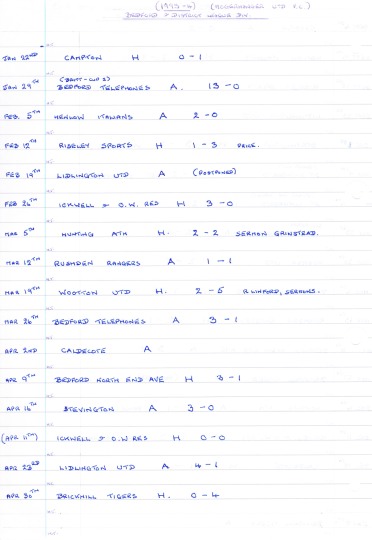 (1993-4) (MOGGERHANGER UTD F.C.)
BEDFORD & DISTRICT LEAGUE DIV.
JAN 22ND CAMPTON H 0-1
JAN 29TH BEDFORD TELEPHONES A. 13-0
FEB. 5TH HENLOW ITALIANS A 2-0
FEB 12TH RISELEY SPORTS H 1-3 PRICE.
FEB 19TH LIDLINGTON UTD A (POSTPONED)
FEB 26TH ICKWELL & O.W. RES H 3-0
MAR 5TH HUNTING ATH H. 2-2 SERMON GRINSTEAD.
MAR 12TH RUSHDEN RANGERS A 1-1
MAR 19TH WOOTTON UTD H. 2-5 R LINFORD, SERMONS.
MAR 26TH BEDFORD TELEPHONES A 3-1
APR 2ND CALDECOTE A
APR 9TH BEDFORD NORTH END AVE H 3-1
APR 16TH STEVINGTON A 3-0
(APR 11TH) ICKWELL & O.W RES H 0-0
APR 23RD LIDLINGTON UTD A 4-1
APR 30TH BRICKHILL TIGERS H. 0-4